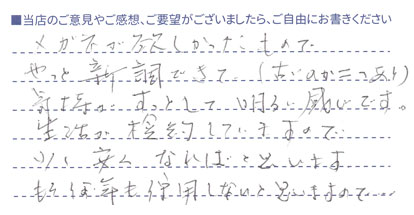 ■当店のご意見やご感想、ご要望がございましたら、ご自由にお書きください
メガネが欲しかったもので
やっと新調できて(古いのが三つあり)
気持がすっとして明るい感じです。
生活が検約していますので
少し安くなればと思います
もう何年も使用しないと思いますので…